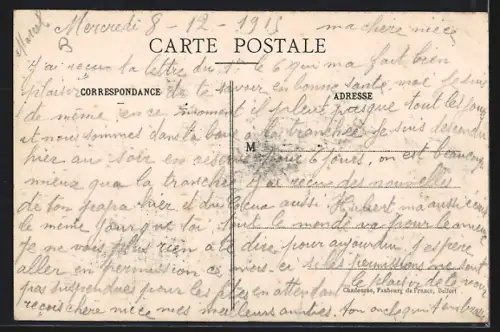 Marcel
Mercredi 8-12-1915 ma chère nièce
CARTE POSTALE
CORRESPONDANCE
ADRESSE
M
J'ai recue ta lettre du le 6 qui ma fait bien
plaisir de te savoir en bonne santé moi je suis
de même en ce moment il pleut presque tout les jours
et nous sommes dans la boue à la tranchée je suis descendu
hier au soir en pour 6 jours, on est beaucoup
mieux que la tranchée j'ai recue des nouvelles
de ton papa hier il du aussi Hubert ma aussi écris
de même pour que toi tout le monde va pour le mieux
Je ne vois plus rien à te dire pour aujourd'hui j'espère
aller en permission ce mois-ci si les permissions ne sont
pas suspendues pour les fêtes en attendant le plaisir de te voir
reçois chère nièce mes meilleurs amitiés ton oncle qui t'embrasse
Chadourne, Faubourg de France, Belfort